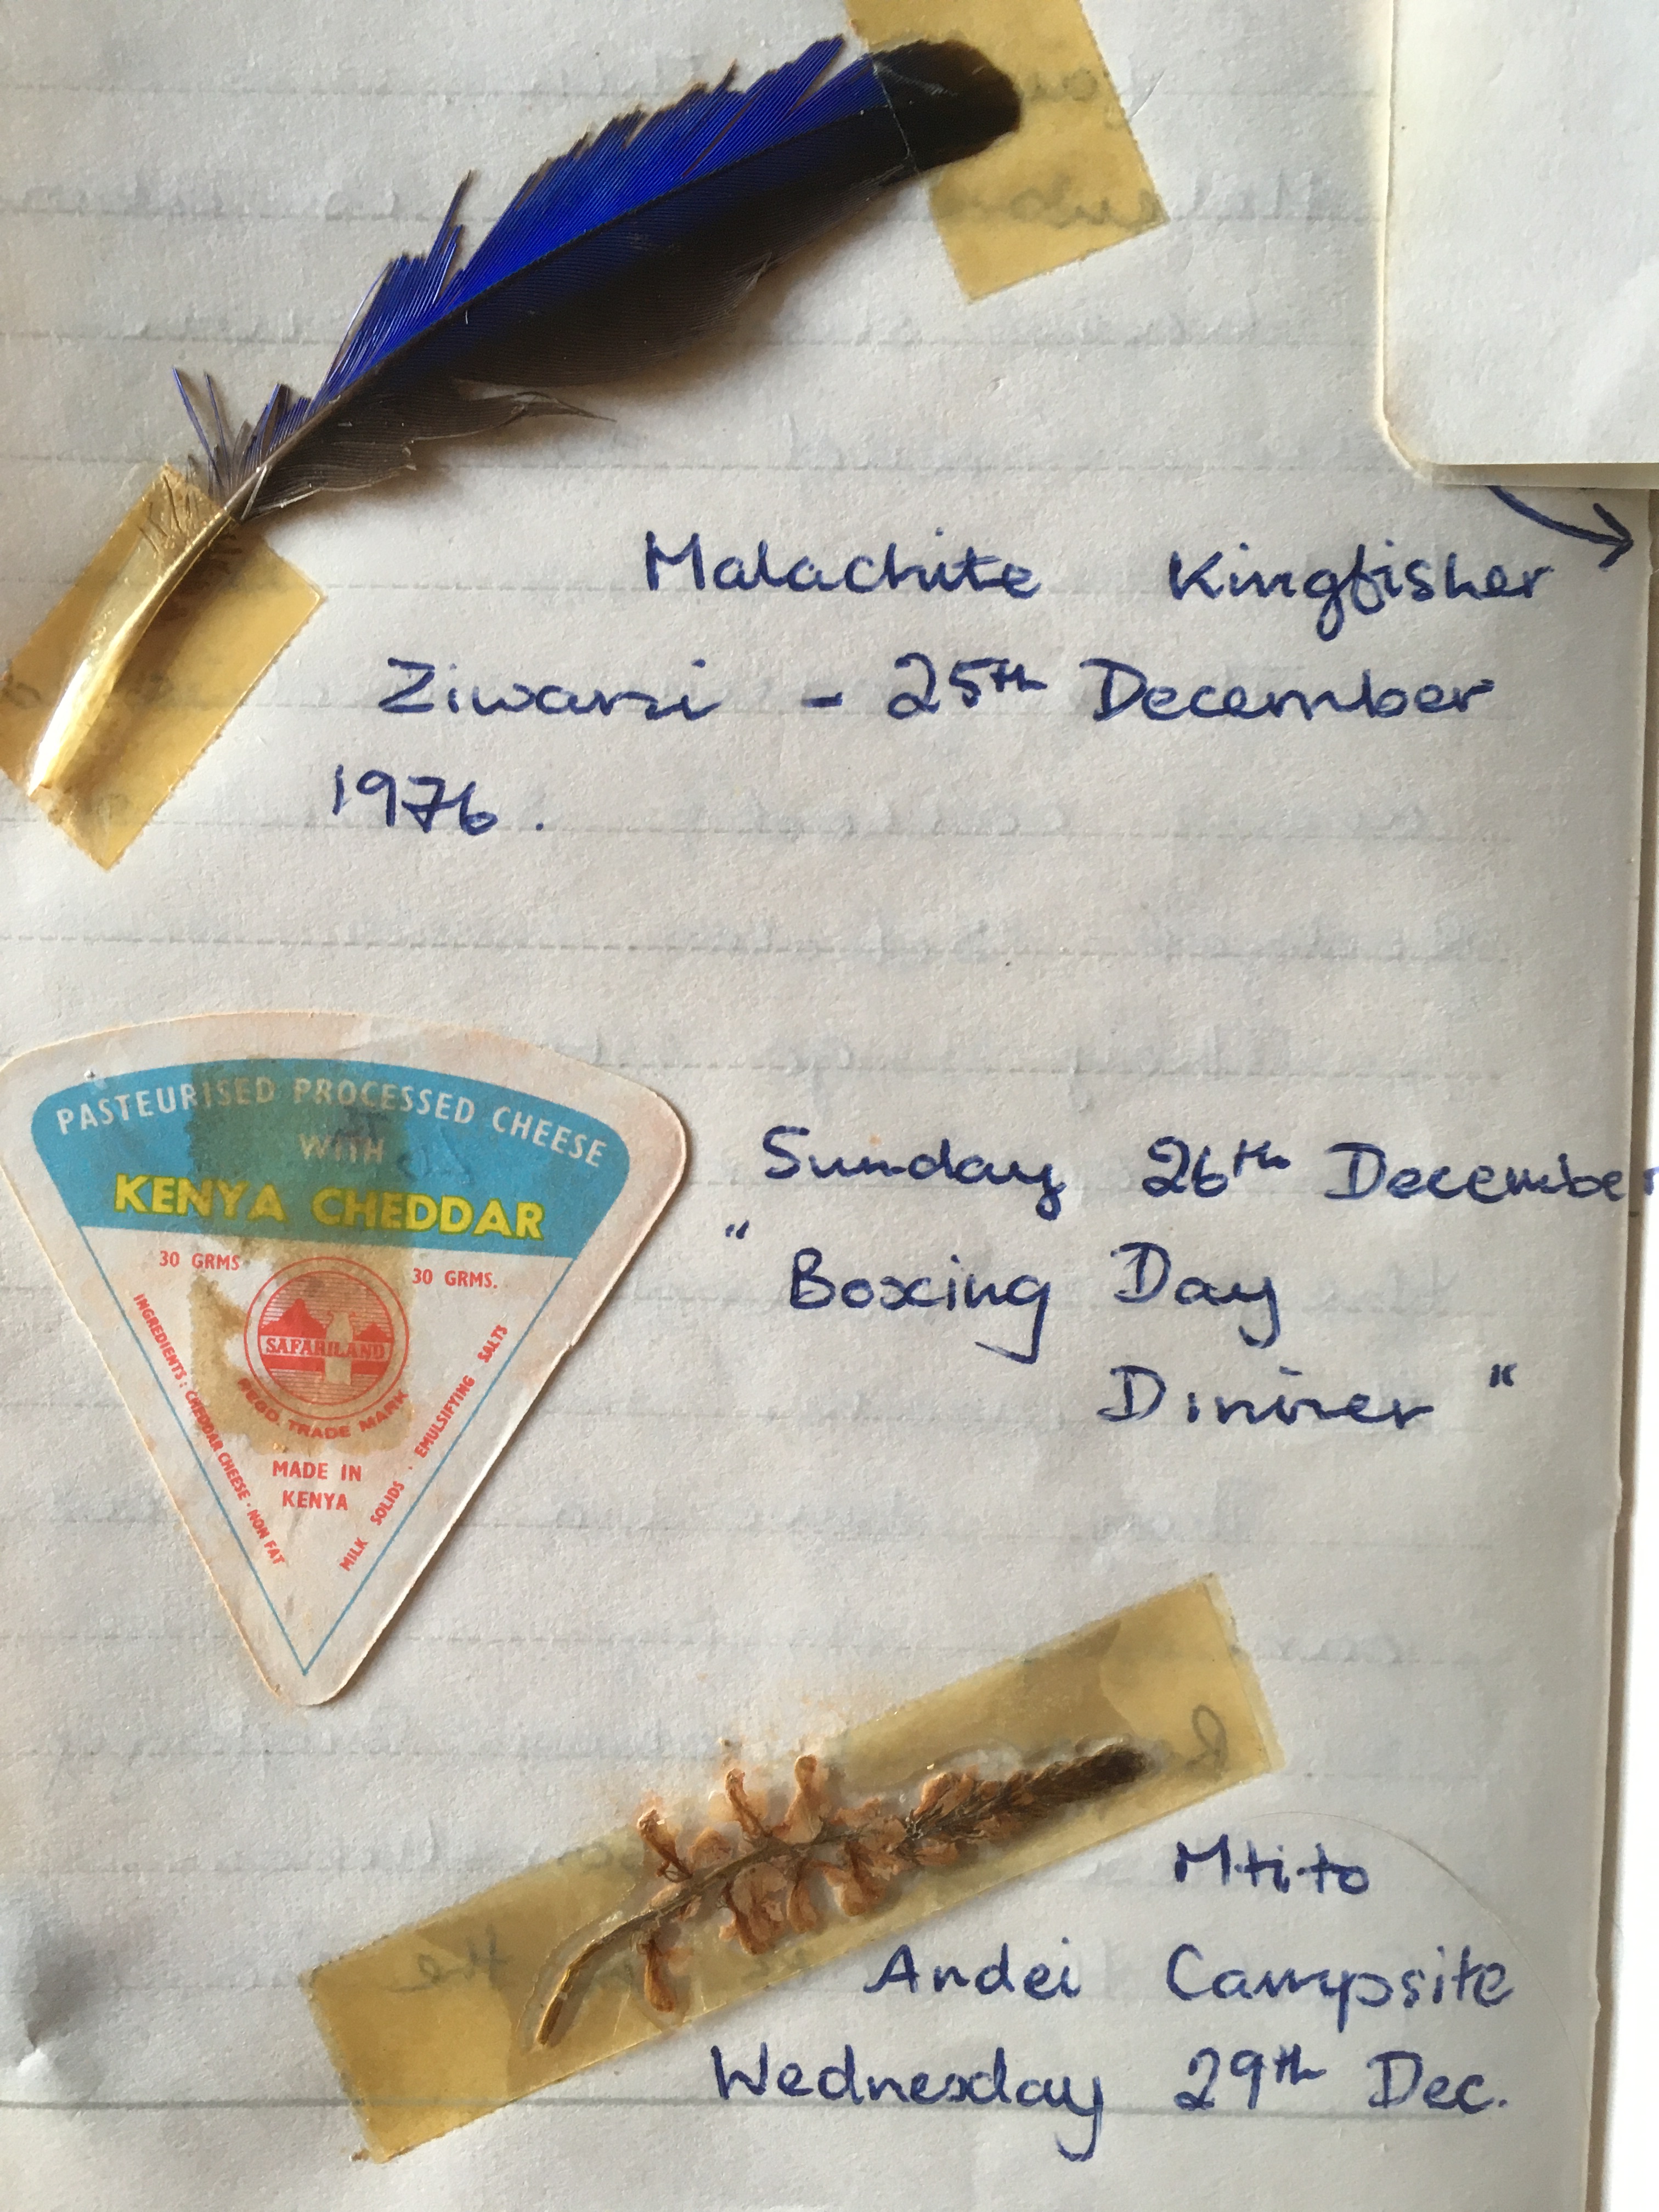 Malachite Kingfisher
Ziwani - 25th December
1976.
PASTEURISED PROCESSED CHEESE
WITH
KENYA CHEDDAR
30 GRMS 30 GRMS.
SAFARILAND
REGD. TRADE MARK
MADE IN
KENYA
INGREDIENTS: CHEDDAR CHEESE · NON FAT
MILK SOLIDS · EMULSIFYING SALTS
Sunday 26th December
"Boxing Day
Dinner"
Mtito
Andei Campsite
Wednesday 29th Dec.